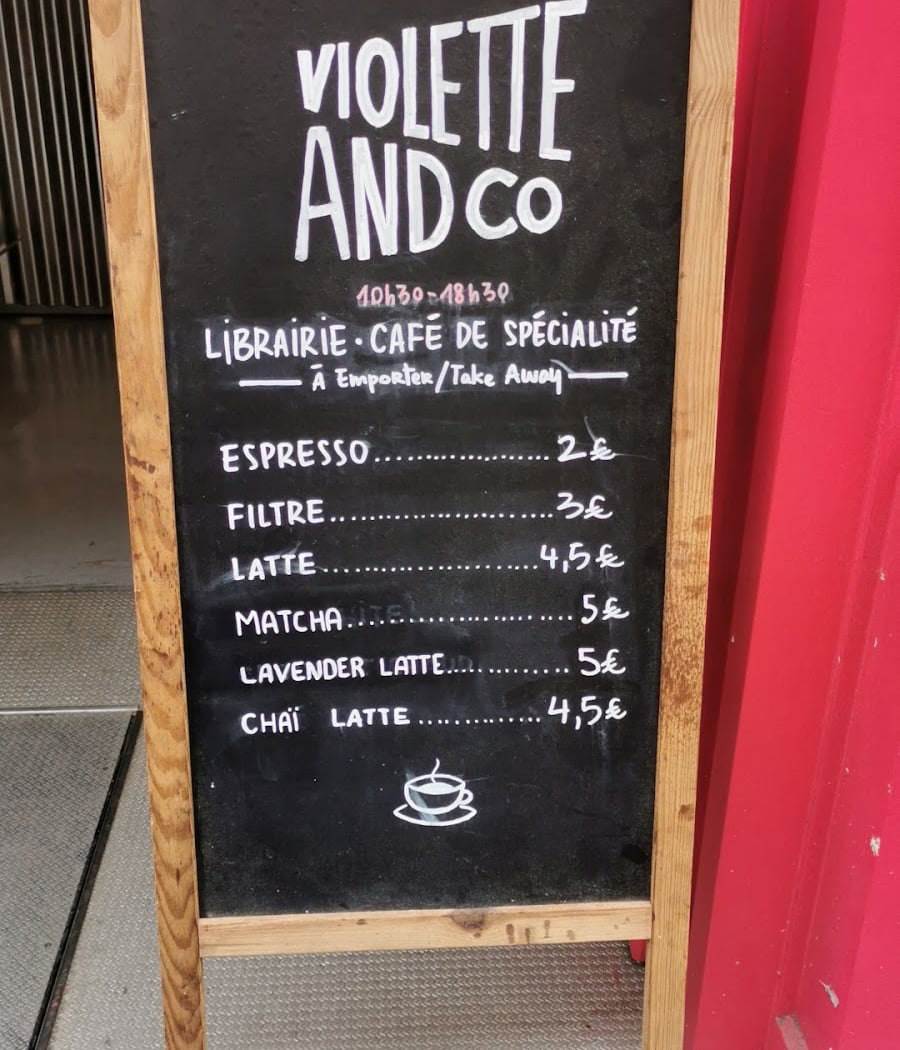 VIOLETTE
AND CO
10h30-18h30
LIBRAIRIE · CAFÉ DE SPÉCIALITÉ
À Emporter/Take Away
ESPRESSO.....................2€
FILTRE..........................3€
LATTE..........................4,5€
MATCHA..........................5€
LAVENDER LATTE..............5€
CHAÏ LATTE..............4,5€